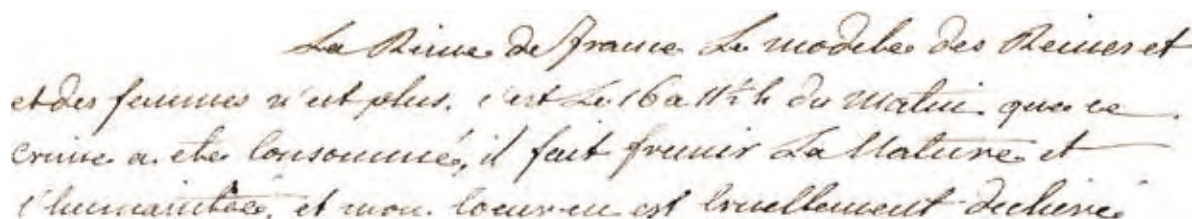 La Reine de france Le modele des Reines et
et des femmes n'est plus. c'est Le 16 a 11½ h du matin que ce
crime a ete consommé, il fait fremir La Nature et
l'humanitée, et mon coeur en est cruellement dechiré